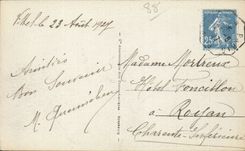 88
le 23 Août 1927
Amitiés
Bon Souvenir
M.
Madame Mortreux
Hôtel Foncillon
à Royan
Charente-Inférieure
25